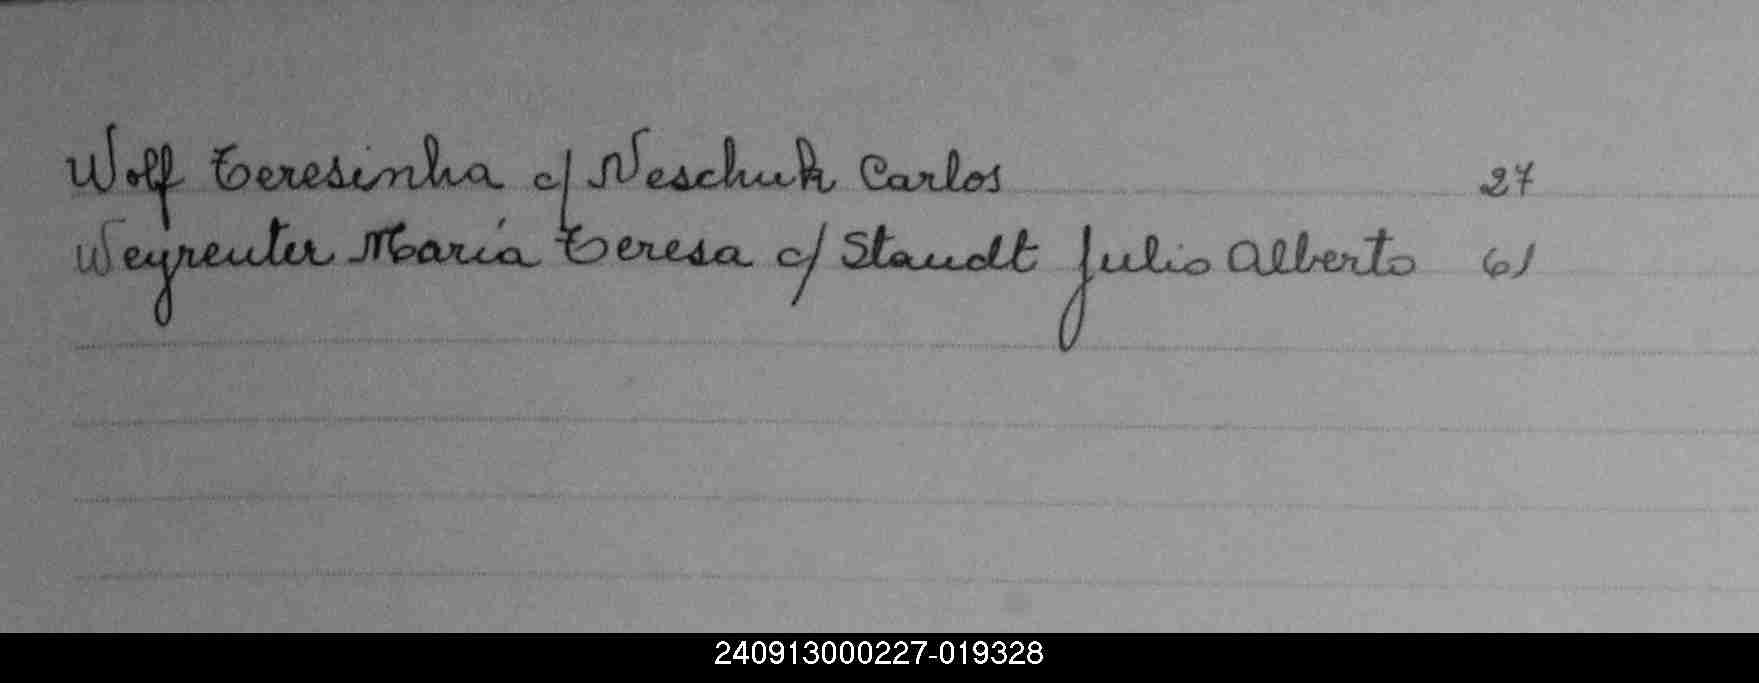 Wolf Teresinha c/ Neschuk Carlos 27
Weyreuter María Teresa c/ Staudt Julio Alberto 61
240913000227-019328